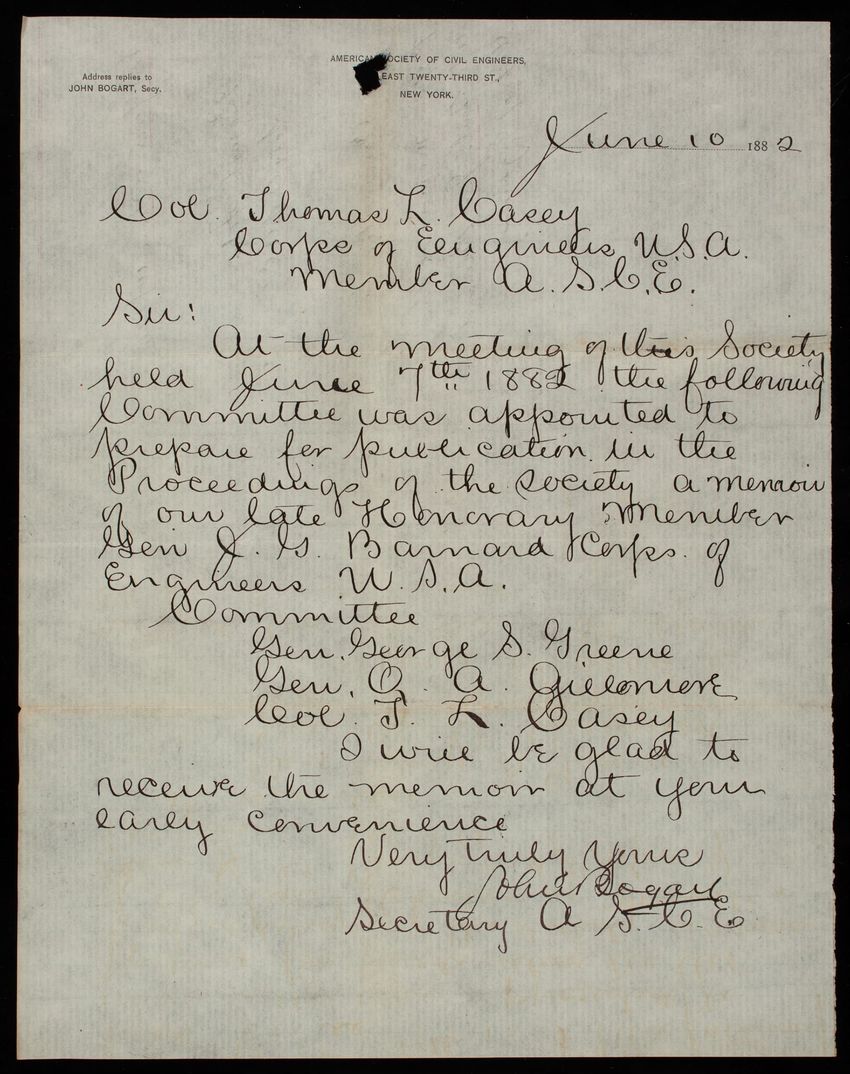 AMERICAN SOCIETY OF CIVIL ENGINEERS,
Address replies to
JOHN BOGART, Secy.
EAST TWENTY-THIRD ST.,
NEW YORK.
June 10 1882
Col. Thomas L. Casey
Corps of Engineers U.S.A.
Member A. S. C. E.
Sir:
At the meeting of this Society
held June 7th 1882 the following
Committee was appointed to
prepare for publication in the
Proceedings of the Society a memoir
of our late Honorary Member
Gen J. G. Barnard Corps. of
Engineers U. S. A.
Committee
Gen. George S. Greene
Gen. Q. A. Gillmore
Col. T. L. Casey
I will be glad to
receive the memoir at your
early convenience
Very truly yours
John Bogart
Secretary A S. C. E